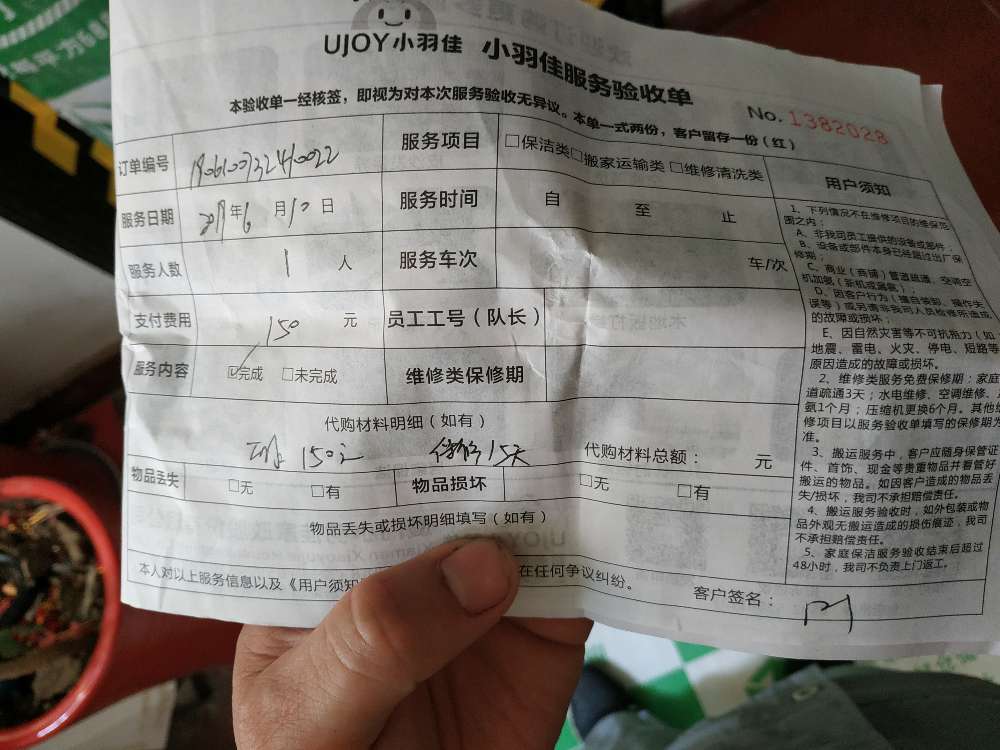 UJOY小羽佳 小羽佳服务验收单
No. 1382028
本验收单一经核签，即视为对本次服务验收无异议。本单一式两份，客户留存一份（红）
订单编号 服务项目 □保洁类□搬家运输类□维修清洗类
服务日期 年6月10日 服务时间 自 至 止
服务人数 1 人 服务车次 车/次
支付费用 150 元 员工工号（队长）
服务内容 ☑完成 □未完成 维修类保修期
代购材料明细（如有）
150 15天 代购材料总额： 元
物品丢失 □无 □有 物品损坏 □无 □有
物品丢失或损坏明细填写（如有）
本人对以上服务信息以及《用户须知 在任何争议纠纷。
客户签名：
用户须知
1、下列情况不在维修项目的维保范
围之内：
A、非我司员工提供的设备或部件；
B、设备或部件本身已经超过出厂保
修期；
C、商业（商铺）管道疏通、空调空
机加氨（新机或漏氨）；
D、因客户行为（擅自拆卸、操作失
误等）或另请非我司人员检修所造成
的故障或损坏；
E、因自然灾害等不可抗拒力（如
地震、雷电、火灾、停电、短路等
原因造成的故障或损坏。
2、维修类服务免费保修期：家庭
道疏通3天；水电维修、空调维修、
氨1个月；压缩机更换6个月。其他
修项目以服务验收单填写的保修期为
准。
3、搬运服务中，客户应随身保管证
件、首饰、现金等贵重物品并看管好
搬运的物品。如因客户造成的物品丢
失/损坏，我司不承担赔偿责任。
4、搬运服务验收时，如外包装或物
品外观无搬运造成的损伤痕迹，我司
不承担赔偿责任。
5、家庭保洁服务验收结束后超过
48小时，我司不负责上门返工。